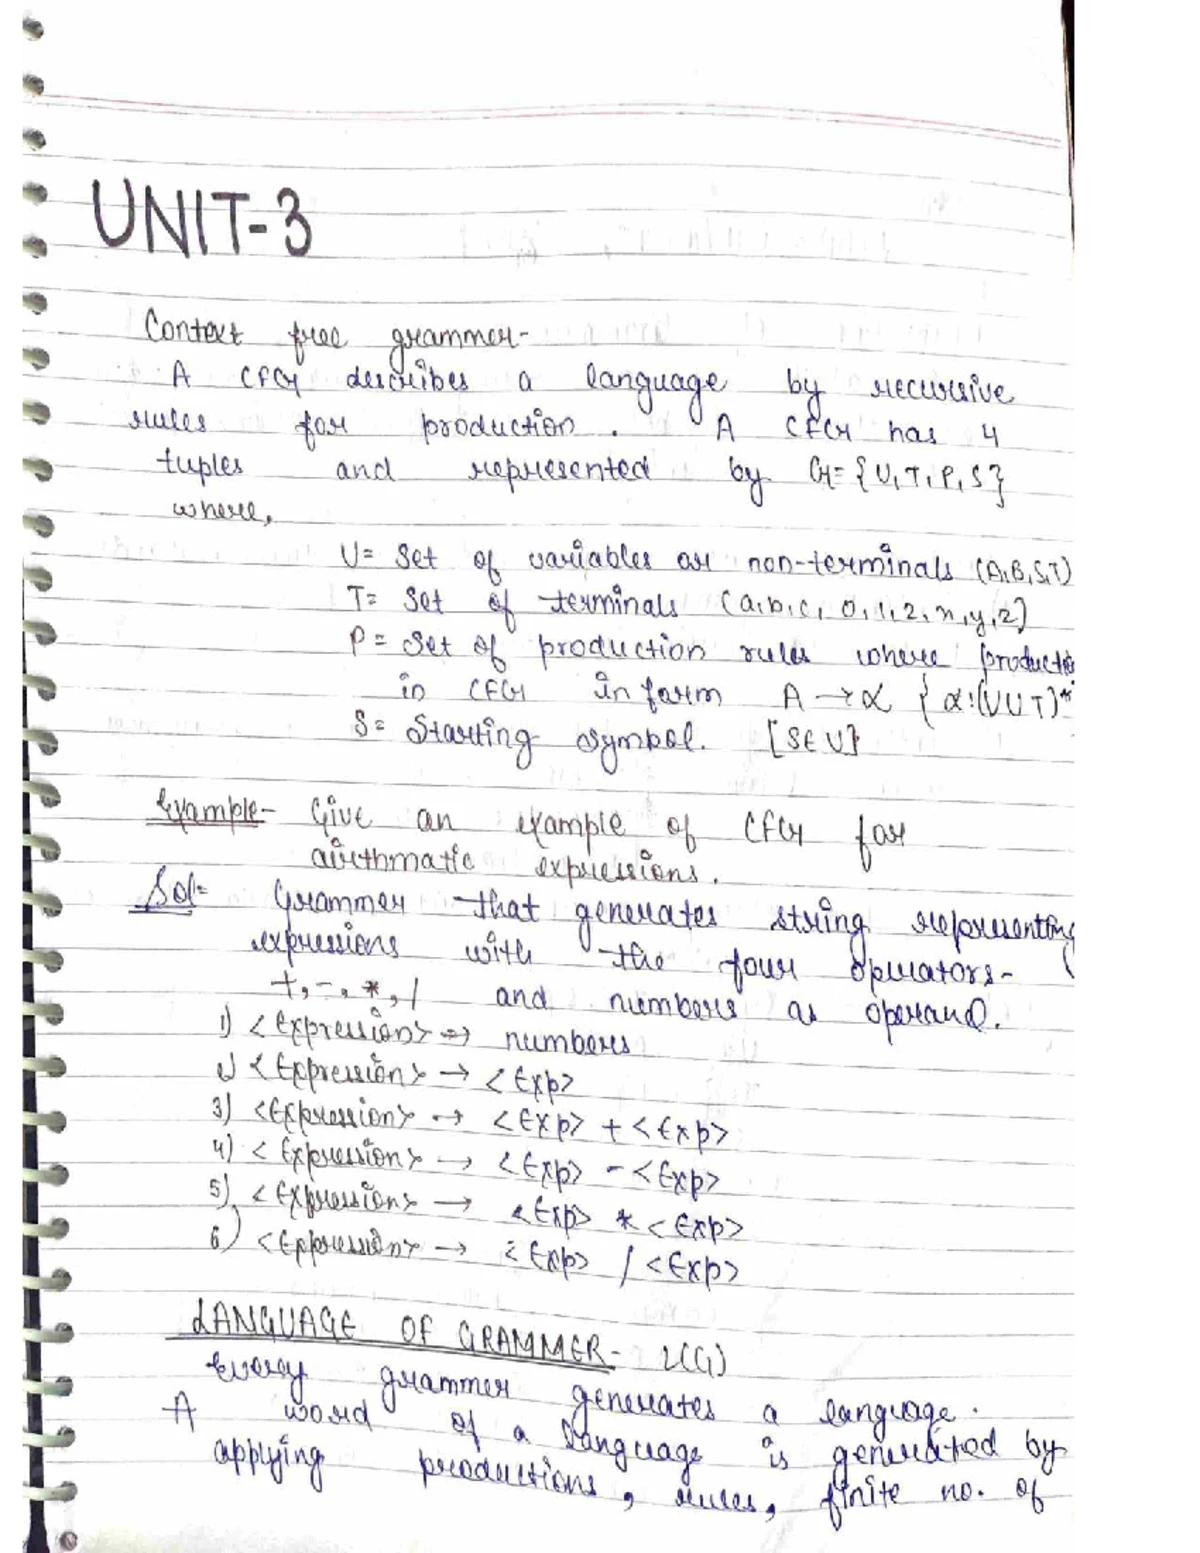 UNIT-3
Context free grammer-
A CFG describes a language by recursive
rules for production. A CFG has 4
tuples and represented by G={V,T,P,S}
where,
V= Set of variables or non-terminals (A,B,S,T)
T= Set of terminals (a,b,c, 0,1,2,x,y,z)
P= Set of production rules where producti
in CFG in form A → α {α:(VUT)*
S= Starting symbol. [S∈V}
Example- Give an example of CFG for
arithmatic expressions.
Sol= Grammer that generates string representing
expressions with the four operators-
+,-,*,/ and numbers as operand.
1) <Expression> => numbers
2) <Expression> → <Exp>
3) <Expression> → <Exp> + <Exp>
4) <Expression> → <Exp> - <Exp>
5) <Expression> → <Exp> * <Exp>
6) <Expression> → <Exp> / <Exp>
LANGUAGE OF GRAMMER- L(G)
Every grammer generates a language.
A word of a language is generated by
applying productions, rules, finite no. of